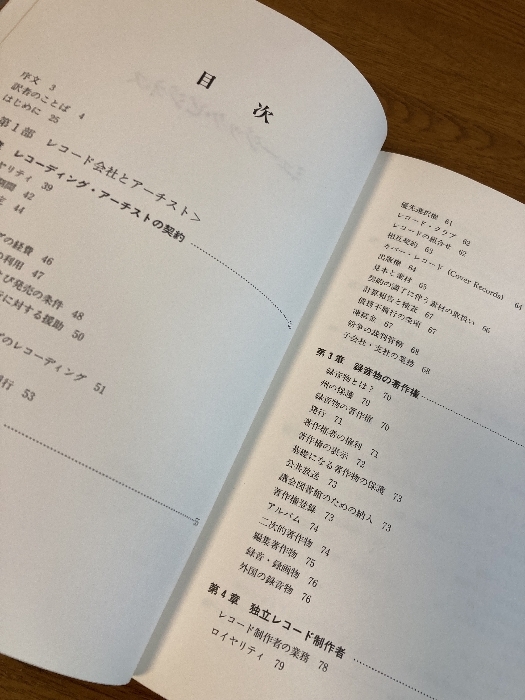 目次
序文 3
訳者のことば 4
はじめに 25
第1部 レコード会社とアーチスト〉
レコーディング・アーチストの契約
ヤリティ 39
期間 42
44
の経費 46
の利用 47
び発売の条件 48
に対する援助 50
のレコーディング 51
発行 53
優先選択権 61
レコード・クラブ 62
レコードの組合せ 62
相互契約 63
カバー・レコード (Cover Records) 64
出版権 64
見本と素材 65
契約の満了に伴う素材の取扱い 66
計算報告と検査 67
債務不履行の条項 67
凍結金 67
紛争の裁判管轄 68
子会社・支社の業務 68
第3章 録音物の著作権
録音物とは? 70
州の保護 70
録音物の著作権 70
発行 71
著作権者の権利 71
著作権の表示 72
基礎になる著作物の保護 73
公共放送 73
議会図書館のための納入 73
著作権登録 73
アルバム 74
二次的著作物 74
編集著作物 75
録音・録画物 76
外国の録音物 76
第4章 独立レコード制作者
レコード制作者の業務 78
ロイヤリティ 79